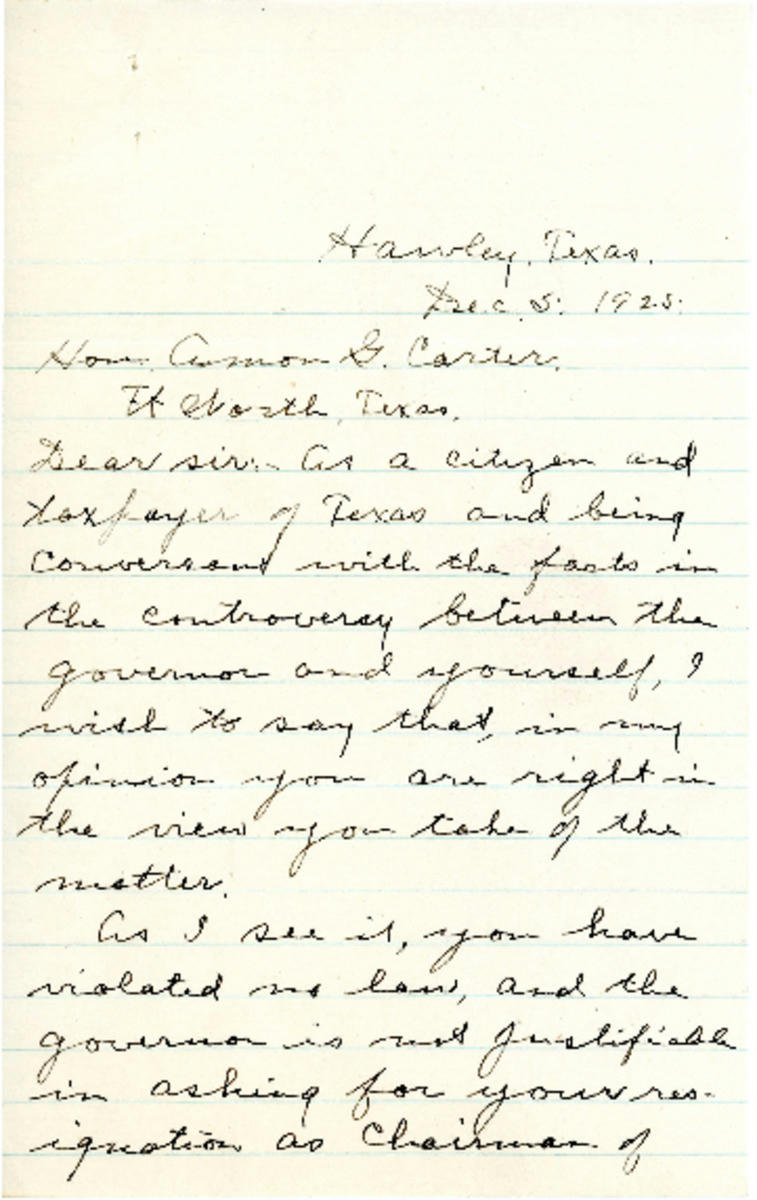 Hawley, Texas.
Dec. 5. 1925.
Hon. Amon G. Carter.
Ft Worth, Texas.
Dear sir:- As a citizen and
taxpayer of Texas and being
conversant with the facts in
the controversy between the
governor and yourself, I
wish to say that, in my
opinion you are right in
the view you take of the
matter.
As I see it, you have
violated no law, and the
governor is not justifiable
in asking for your res-
ignation as Chairman of